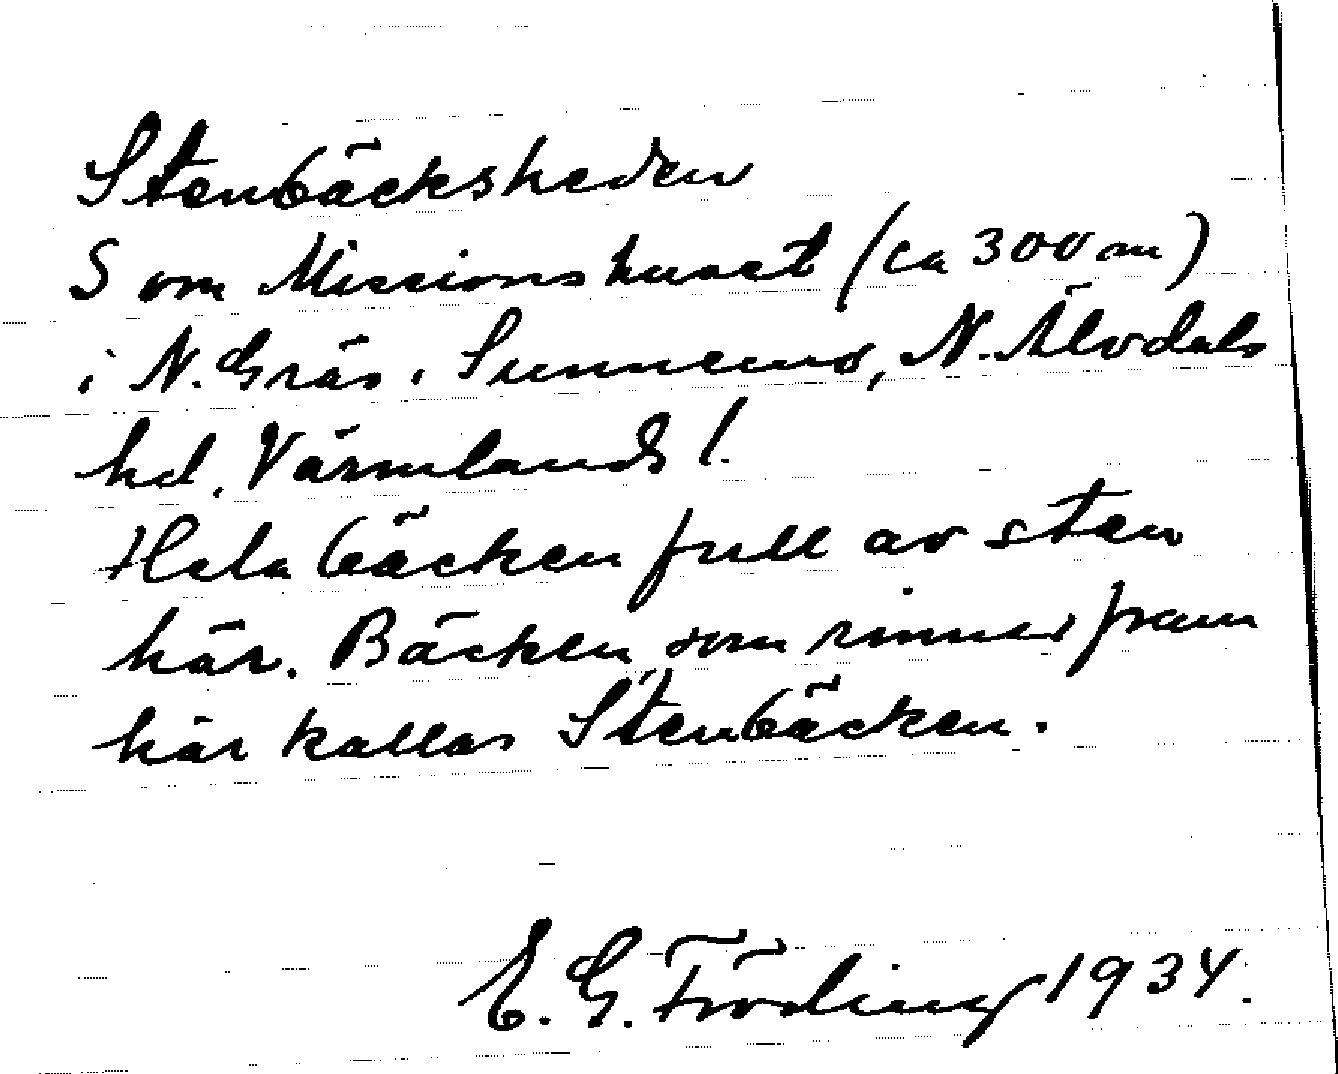 Stenbäcksheden
S om Missionshuset (ca 300 m)
i N. Gräs. Sunnemo, N. Älvdals
hd. Värmlands l.
Hela bäcken full av sten
här. Bäcken, som rinner fram
här kallas Stenbäcken.
E. G. Fröding 1934.